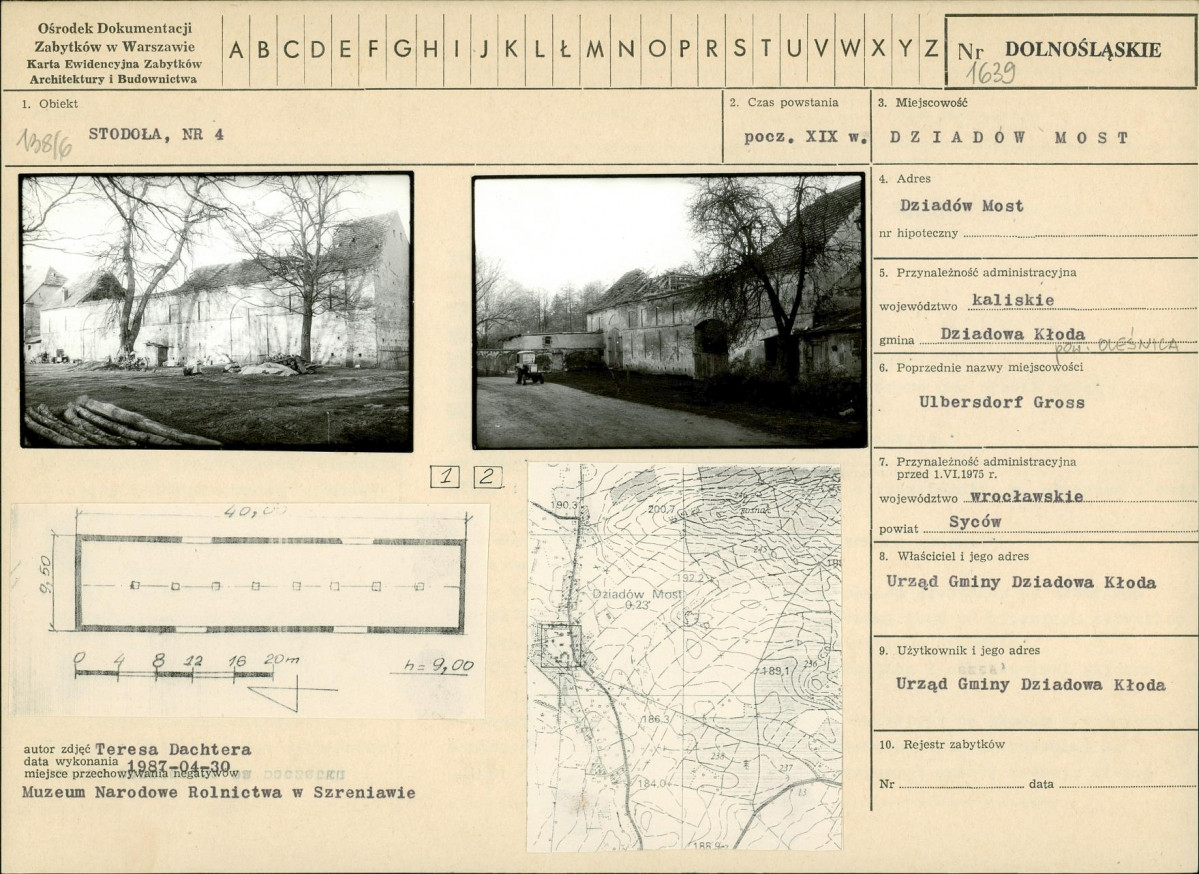 Ośrodek Dokumentacji
Zabytków w Warszawie
Karta Ewidencyjna Zabytków
Architektury i Budownictwa
A B C D E F G H I J K L Ł M N O P R S T U V W X Y Z
Nr DOLNOŚLĄSKIE
1639
1. Obiekt
138/6 STODOŁA, NR 4
2. Czas powstania
pocz. XIX w.
3. Miejscowość
DZIADÓW MOST
4. Adres
Dziadów Most
nr hipoteczny
5. Przynależność administracyjna
województwo kaliskie
gmina Dziadowa Kłoda
pow. OLEŚNICA
6. Poprzednie nazwy miejscowości
Ulbersdorf Gross
7. Przynależność administracyjna
przed 1.VI.1975 r.
województwo wrocławskie
powiat Syców
8. Właściciel i jego adres
Urząd Gminy Dziadowa Kłoda
9. Użytkownik i jego adres
Urząd Gminy Dziadowa Kłoda
10. Rejestr zabytków
Nr data
1 2
40,00
9,50
0 4 8 12 16 20m
h = 9,00
190,3
200,7
192,2
Dziadów Most
0,23
189,1
186,3
184,0
188,9
236
238
237
autor zdjęć Teresa Dachtera
data wykonania 1987-04-30
miejsce przechowywania negatywów
Muzeum Narodowe Rolnictwa w Szreniawie